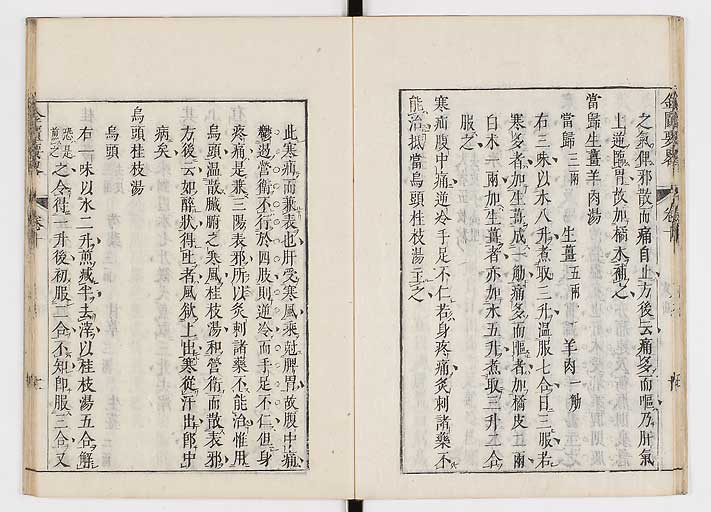 之氣俾邪散而痛自止方後云痛多而嘔乃肝氣
上逆臨胃故加橘朮補之
當歸生薑羊肉湯
當歸三兩 生薑五兩 羊肉一觔
右三味以水八升煮取三升溫服七合日三服若
寒多者加生薑成一觔痛多而嘔者加橘皮二兩
白朮一兩加生薑者亦加水五升煮取三升二合
服之
寒疝腹中痛逆冷手足不仁若身疼痛灸刺諸藥不
能治抵當烏頭桂枝湯主之
金匱要畧 卷十
此寒疝而兼表也肝受寒風乘尅脾胃故腹中痛
鬱遏營衛不行於四肢則逆冷而手足不仁但身
疼痛是兼三陽表邪所以灸刺諸藥不能治惟用
烏頭溫散臟腑之寒風桂枝湯和營衛而散表邪
方後云如醉狀得吐者風欲上出寒從汗出卽中
病矣
烏頭桂枝湯
烏頭
右一味以水二升煎減半去滓以桂枝湯五合解
恐是煎之之令得一升後初服二合不知卽服三合又
卷十